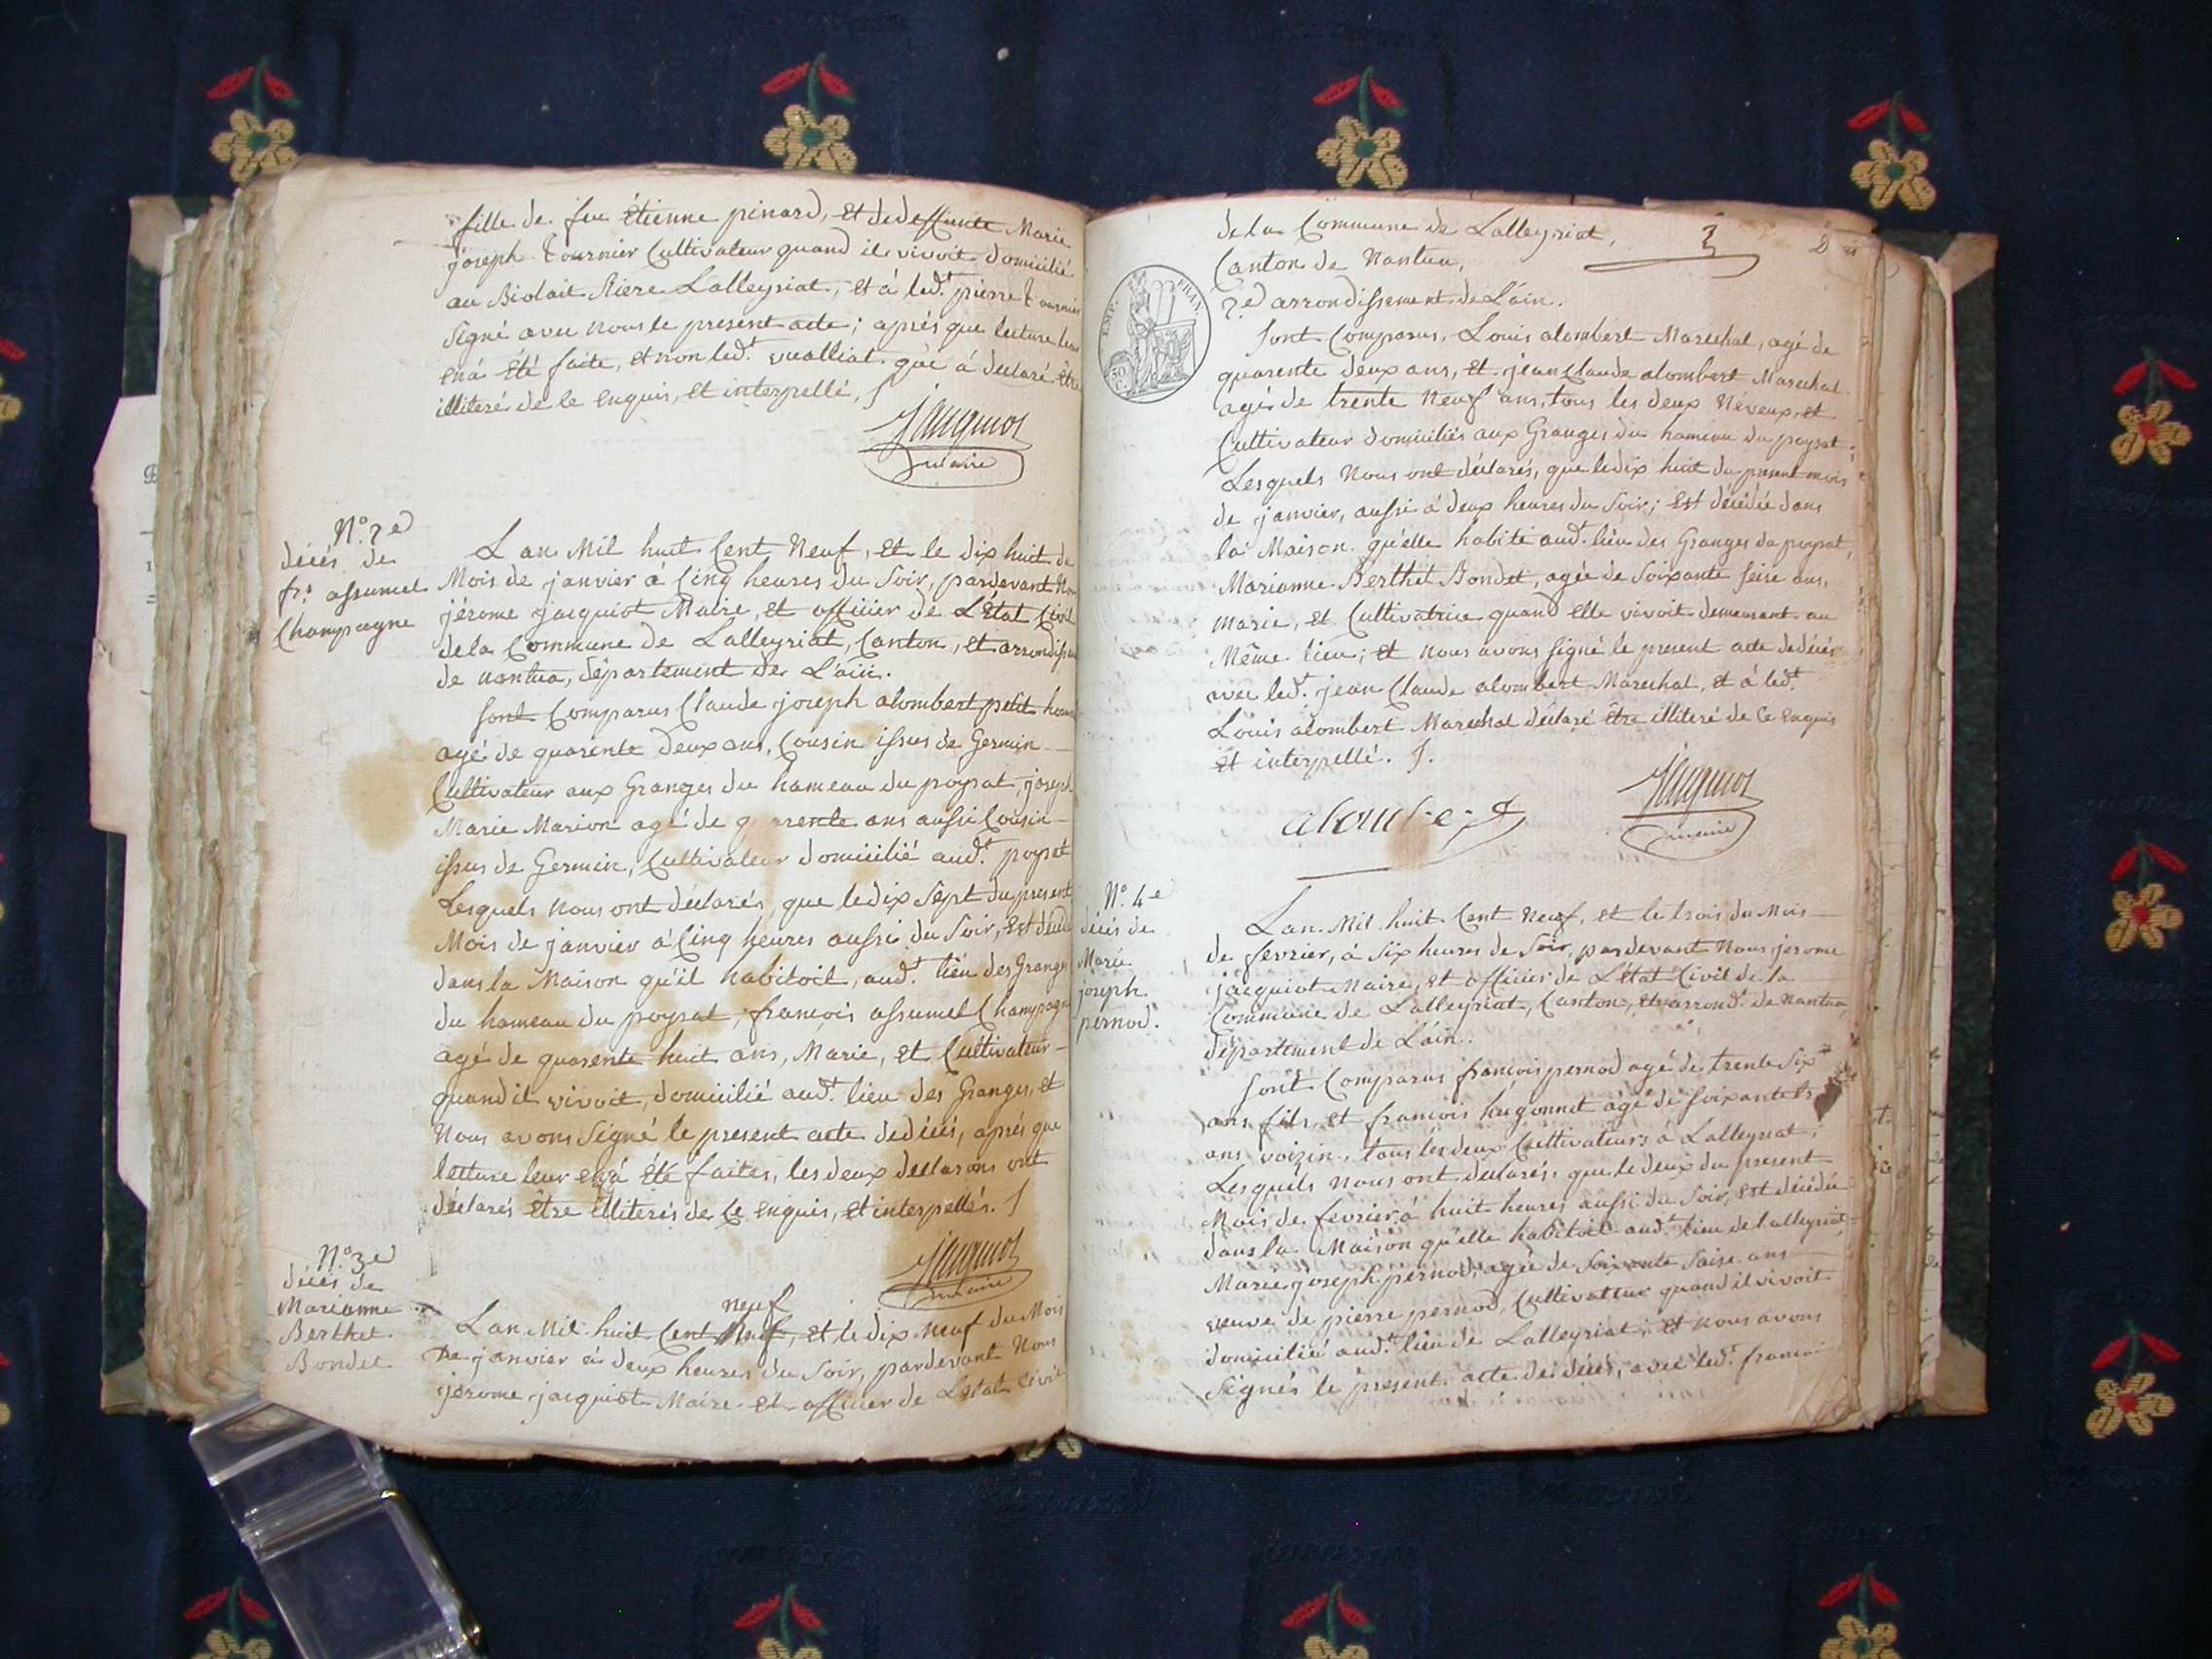 fille de feu Étienne pinard, et de deffunte Marie
joseph tournier Cultivateur quand il vivoit domicilié
au Biolait Riere Lalleyriat, et à led.t pierre tournier
Signé avec nous le present acte; aprés que lecture leur
en à été faite, et non led.t vualliat qui à déclaré être
illiteré de le enquis, et interpellé,
Jacquiot
maire
N.° 2.e
décés de
fr.s assumel
Champagne
Lan Mil huit Cent Neuf, et le dix huit de
Mois de janvier à Cinq heures du Soir, pardevant Nous
jérome jacquiot Maire, et officier de L'État Civil
dela Commune de Lalleyriat, Canton, et arrondissement
de nantua, département de L'ain.
Sont Comparus Claude joseph alombert petit homme
agé de quarente deux ans, Cousin issus de Germin
Cultivateur aux Granges du hameau du poysat, joseph
Marie Marion agé de quarente ans aussi Cousin
issus de Germin, Cultivateur domicilié aud.t poysat
Lesquels nous ont déclarés, que le dix Sept du present
Mois de janvier à Cinq heures aussi du Soir, est décédé
dans la Maison qu'il habitoit, aud.t lieu des Granges
du hameau du poysat, francois assumel Champagne
agé de quarente huit ans, Marié, et Cultivateur
quand il vivoit, domicilié aud.t lieu des Granges, et
Nous avons Signé le present acte de décés, aprés que
lecture leur en à été faites, les deux declarans ont
déclarés être illiterés de le enquis, et interpellés.
Jacquiot
maire
N.° 3.e
décés de
Marianne
Berthet
Bondet
neuf
Lan Mil huit Cent Neuf, et le dix neuf du Mois
De janvier à deux heures du Soir, pardevant Nous
jérome jacquiot Maire et officier de L'état Civil
de la Commune de Lalleyriat,
Canton de Nantua,
2.e arrondissement de L'ain.
3
EMP. FRAN.
50
Sont Comparus, Louis alombert Marechal, agé de
quarente deux ans, et jean Claude alombert Marechal
agé de trente Neuf ans, tous les deux Néveux, et
Cultivateur domiciliés aux Granges du hameau du poysat;
Lesquels Nous ont déclarés, que le dix huit du present mois
de janvier, aussi à deux heures du Soir; est décédée dans
la Maison qu'elle habite aud.t lieu des Granges du poysat,
Marianne Berthet Bondet, agée de Soixante seise ans,
Marie, et Cultivatrice quand elle vivoit demeurant au
Même lieu; et nous avons signé le present acte de décés
avec led.t jean Claude alombert Marechal, et à led.t
Louis alombert Marechal déclaré être illiteré de le enquis
et interpellé.
alombert
Jacquiot
maire
N.° 4.e
décés de
Marie
joseph
pernod.
Lan Mil huit Cent Neuf, et le trois du Mois
de fevrier, à Six heures de Soir, pardevant Nous jerome
jacquiot Maire, et officier de L'état Civil de la
Commune de Lalleyriat, Canton, et arrond.t de Nantua,
département de L'ain.
Sont Comparus francois pernod agé de trente Six
ans fils, et francois hugonnet agé de soixante
ans voizin, tous les deux Cultivateurs à Lalleyriat;
Lesquels nous ont declarés, que le deux du present
Mois de fevrier à huit heures aussi du Soir, est décédée
dans la Maison qu'elle habitoit aud.t lieu de lalleyriat,
Marie joseph pernod, agée de Soixante Saise ans
veuve de pierre pernod, Cultivateur quand il vivoit
domicilié aud.t lieu de Lalleyriat; et nous avons
Signés le present acte de décés, avec led.t francois